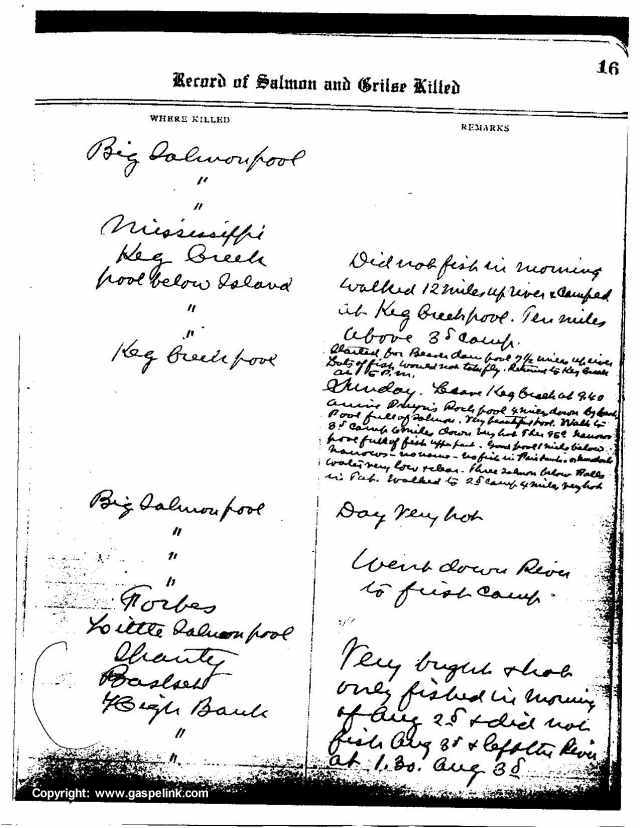 16
Record of Salmon and Grilse Killed
WHERE KILLED
REMARKS
Big Salmon pool
"
"
Mississippi
Keg Creek
pool below Island
"
"
Keg Creek pool
Did not fish in morning
walked 12 miles up river & camped
at Keg Creek pool. Ten miles
above 3d camp.
Started for Beaver dam pool 7½ miles up river
Lots of fish would not take fly. Returned to Keg Creek
at P.M.
Sunday. Leave Keg Creek at 9.40
arrive Rock pool 4 miles down
Pool full of Salmon. Very beautiful pool. Walk to
3d Camp 6 miles down very hot
pool full of fish
narrows no fish in
water very low & clear. Three Salmon below Falls
in Walked to 2d camp 4 miles very hot
Big Salmon pool
"
"
"
Forbes
Little Salmon pool
Shanty
Basket
High Bank
"
"
Day very hot
Went down River
to first camp.
Very bright & hot
only fished in morning
of Aug 2d & did not
fish Aug 3d & left the River
at 1.30. Aug 3d
Copyright: www.gaspelink.com